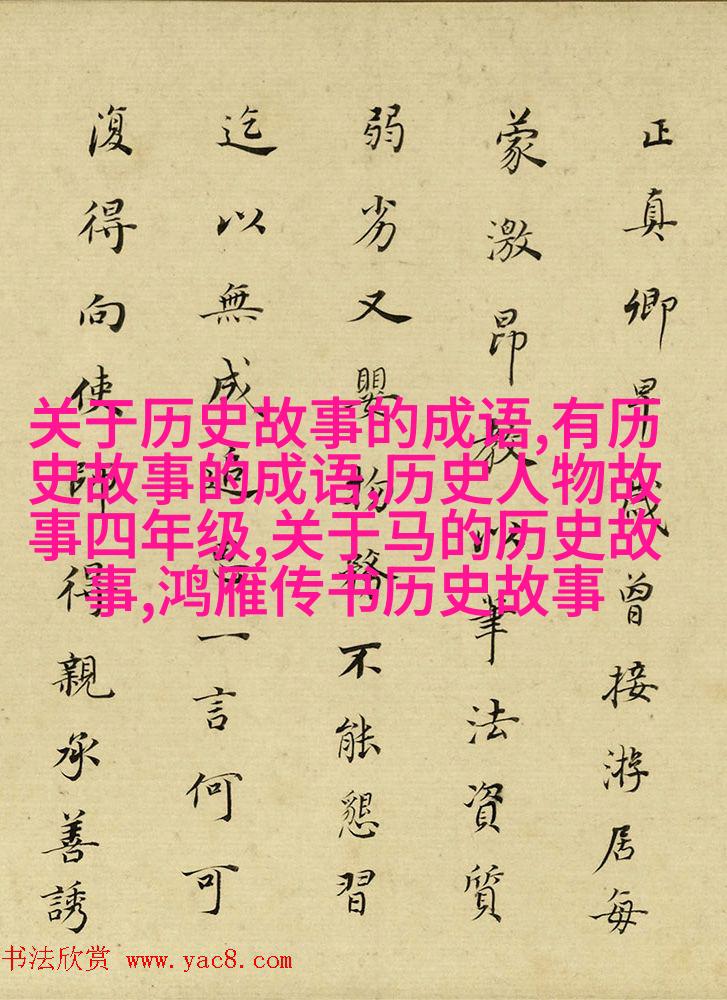 正真卿早歲曾接游居每
蒙激昂教以筆法資質
弱劣又嬰物務不能懇習
迄以無成追思一言何可
復得向使師得親承善誘
关于历史故事的成语,有历
史故事的成语,历史人物故
事四年级,关于马的历史故
事,鸿雁传书历史故事
书法欣赏 www.yac8.com